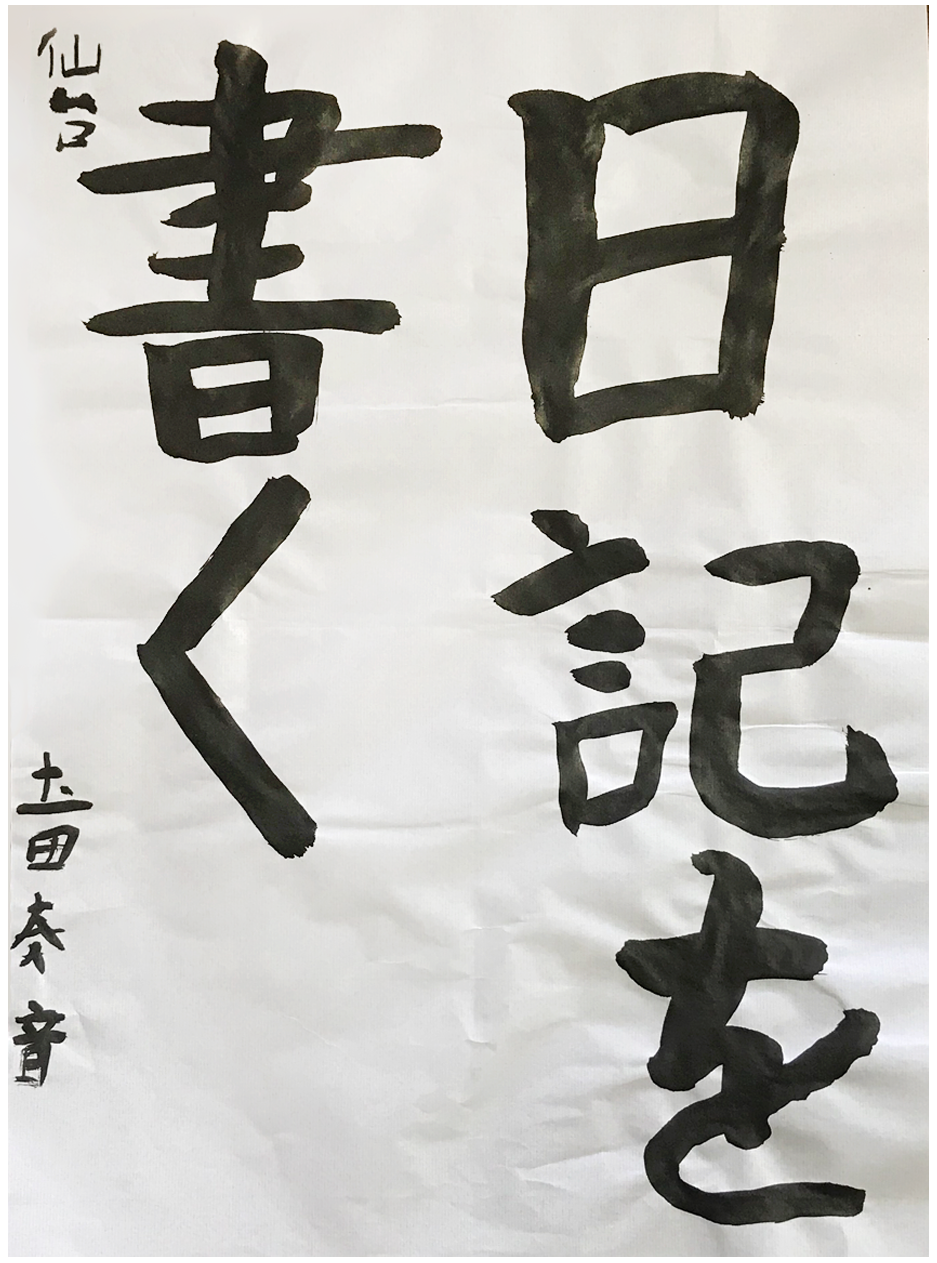 日記を
書く
仙台
土田奏音